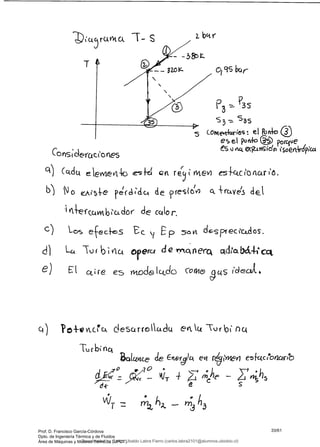 Diagrama T-S
2 bar
380K
320K
0,95 bar
T
1
2
3
3s
S
P3 = P3s
S3 = S3s
comentarios: el punto 3
es el punto 3s porque
es una expansión isoentrópica
Consideraciones
a) Cada elemento está en régimen estacionario.
b) No existe pérdida de presión a través del
intercambiador de calor.
c) Los efectos Ec y Ep son despreciados.
d) La Turbina opera de manera adiabática
e) El aire es modelado como gas ideal.
a) Potencia desarrollada en la Turbina
Turbina
Balance de Energía en régimen estacionario
dE/dt = Q̇ - ẆT + Σ ṁe he - Σ ṁs hs
ẆT = ṁ2 h2 - ṁ3 h3
Prof. D. Francisco García-Córdova
Dpto. de Ingeniería Térmica y de Fluidos
Área de Máquinas y Motores Térmicos (UPCT)
33/61